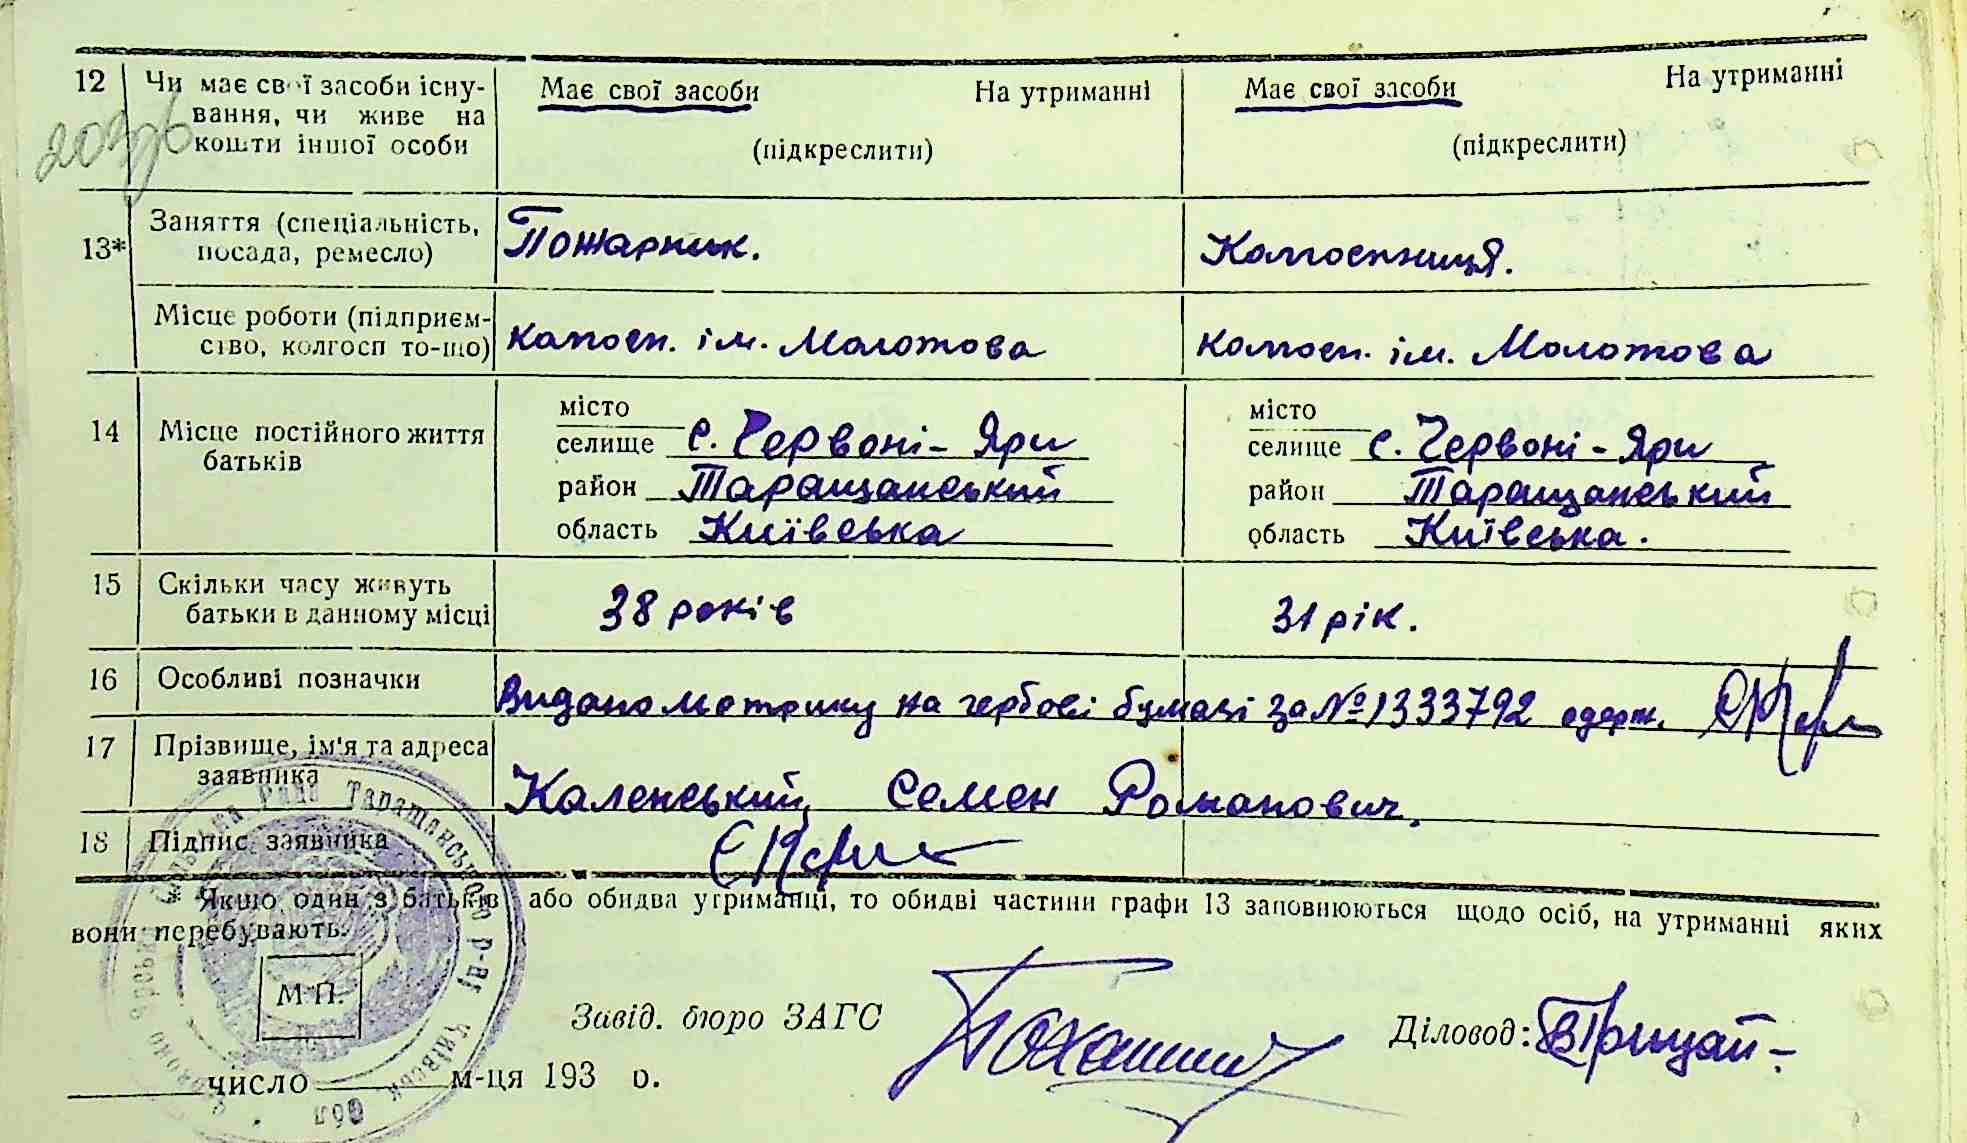 12 Чи має свої засоби існу- Має свої засоби На утриманні Має свої засоби На утриманні
вання, чи живе на
кошти іншої особи (підкреслити) (підкреслити)
13* Заняття (спеціальність, Пожарник. Колгоспниця.
посада, ремесло)
Місце роботи (підприєм- колгосп. ім. Молотова колгосп. ім. Молотова
ство, колгосп то-що)
місто місто
14 Місце постійного життя селище с. Червоні-Яри селище с. Червоні-Яри
батьків район Таращанський район Таращанський
область Київська область Київська.
15 Скільки часу живуть 38 років 31 рік.
батьки в данному місці
16 Особливі позначки Видано метрику на гербові бумазі за №1333792 одерж.
17 Прізвище, ім'я та адреса
заявника Каленський Семен Романович.
18 Підпис заявника
* Якщо один з батьків або обидва утриманці, то обидві частини графи 13 заповнюються щодо осіб, на утриманні яких
вони перебувають.
М П.
Завід. бюро ЗАГС Діловод:
число м-ця 193 о.
Рада Таращанського р-ну Київськ обл